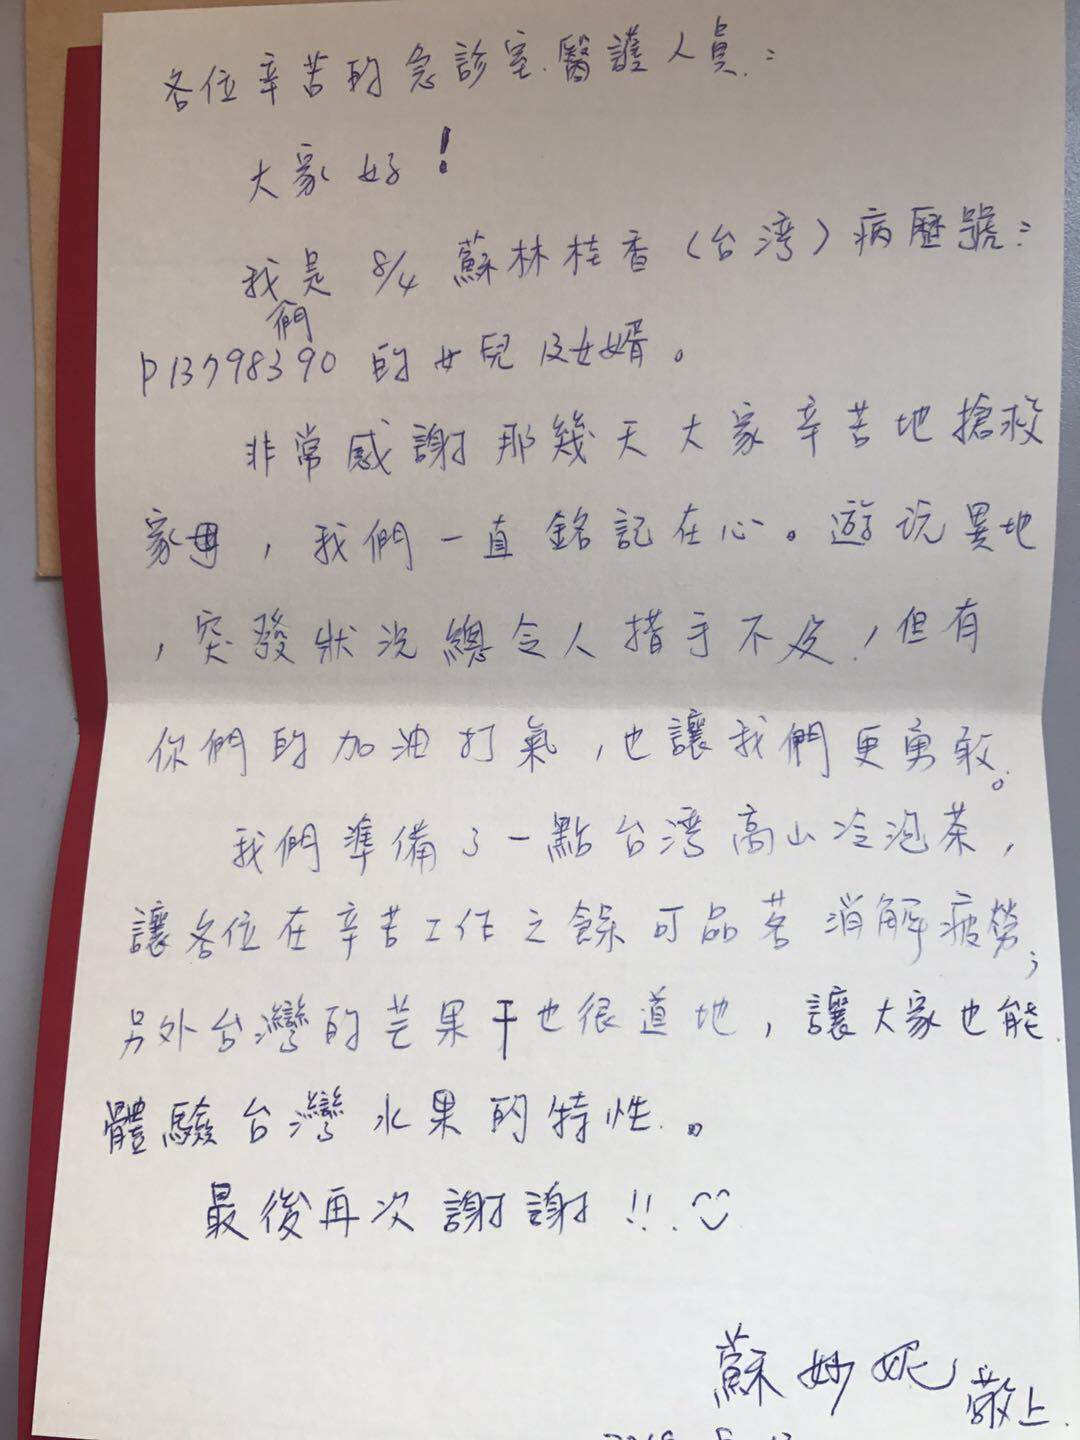 各位辛苦的急診室醫護人員:
大家好!
我們是 8/4 蘇林桂香(台湾)病歷號:
P13798390 的女兒及女婿。
非常感謝那幾天大家辛苦地搶救
家母,我們一直銘記在心。遊玩異地
,突發狀況總令人措手不及!但有
你們的加油打氣,也讓我們更勇敢。
我們準備了一點台湾高山冷泡茶,
讓各位在辛苦工作之餘可品茗消解疲勞;
另外台灣的芒果干也很道地,讓大家也能
體驗台灣水果的特性。
最後再次謝謝!!
蘇妙妮 敬上.